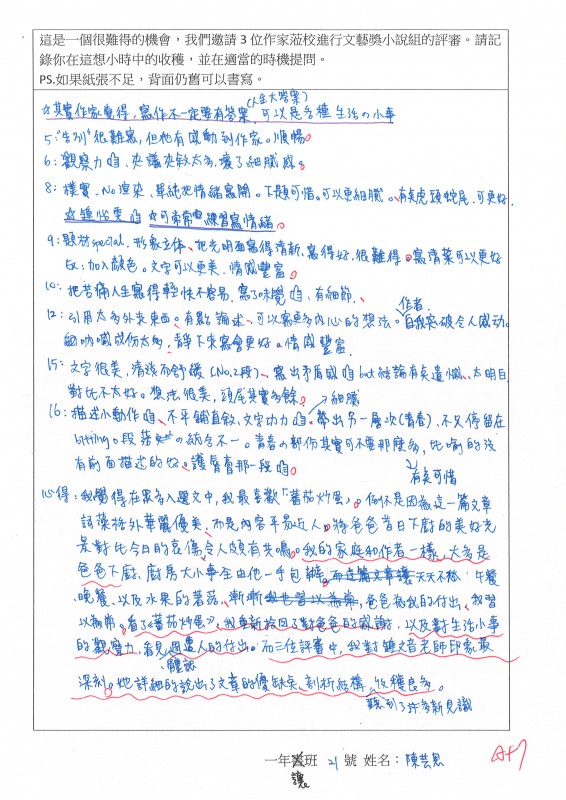 這是一個很難得的機會，我們邀請 3 位作家蒞校進行文藝獎小說組的評審。請記
錄你在這想小時中的收穫，並在適當的時機提問。
PS.如果紙張不足，背面仍舊可以書寫。
(人生大答案)
☆其實作家覺得，寫作不一定要有答案，可以是各種生活の小事
5："告別"很難寫，但他有感動到作家。順暢。
6：觀察力佳、夾議夾敘太多，壞了細膩感。
8：樸實、No渲染、單純把情緒寫開。下題可惜。可以更細膩。有點虎頭蛇尾，可更好
☆鍾 ☆可常常練習寫情緒。
9：題材special、形象立體、把光明面寫得清新、寫得好，很難得。寫清菜可以更好
Ex：加入顏色。文字可以更美，情感豐富。
10：把苦痛人生寫得輕快不容易，寫了味覺佳、有細節、
作者
12：引用太多外來東西。有點論述、可以寫更多內心的想法。自我突破令人感动。
吶喊成份太多，靜下來寫會更好。情感豐富.
15：文字很美，清淺而舒緩（No.2段）、寫出矛盾感佳but結論有點遺憾、太明目
對比不太好。想法很美，頭尾其實多餘。
→細膩
16：描述小動作佳、不平鋪直敘、文字功力佳。帶出另一層次（青春），不又停留在
の統合不一。青春の部份其實可不要那麼多，比喻的沒
有前面描述的好。護唇膏那一段佳。
有點可惜
心得：我覺得在眾多入選文中，我最喜歡「蕃茄炒蛋」。倒不是因為這一篇文章
詞藻格外華麗優美、而是內容平易近人。將爸爸昔日下廚的美好光
景對比今日的哀傷，令人頗有共鳴。我的家庭和作者一樣，大多是
爸爸下廚，廚房大小事全由他一手包辦。天天不檢 午餐、
晚餐、以及水果的著落、漸漸 爸爸為我的付出，我習
以為常。看了《蕃茄炒蛋》，我重新拾回了對爸爸的感謝，以及對生活小事
的觀察力，看見周遭人的付出。而三位評審中，我對鍾文音老師印象最
體認
深刻。她詳細的說出了文章的優缺点、剖析結構、收穫良多。
聽到了許多新見識
一年 班 21 號 姓名：陳芸思
讓
A+